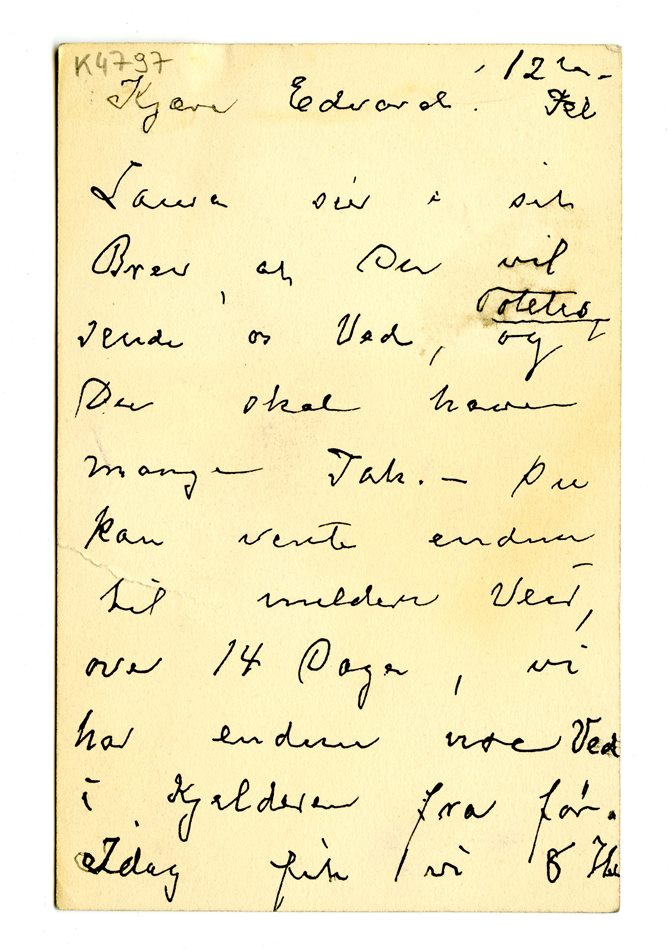 K4797
12
Kjære Edvard.
Laura sier i sit
Brev, at Du vil
sende os Ved, og Potetes
Du skal have
mange Tak. – Du
kan vente endnu
til mildere Veir,
over 14 Dage, vi
har endnu noe Ved
i Kjelderen fra før.
Idag fik vi 8